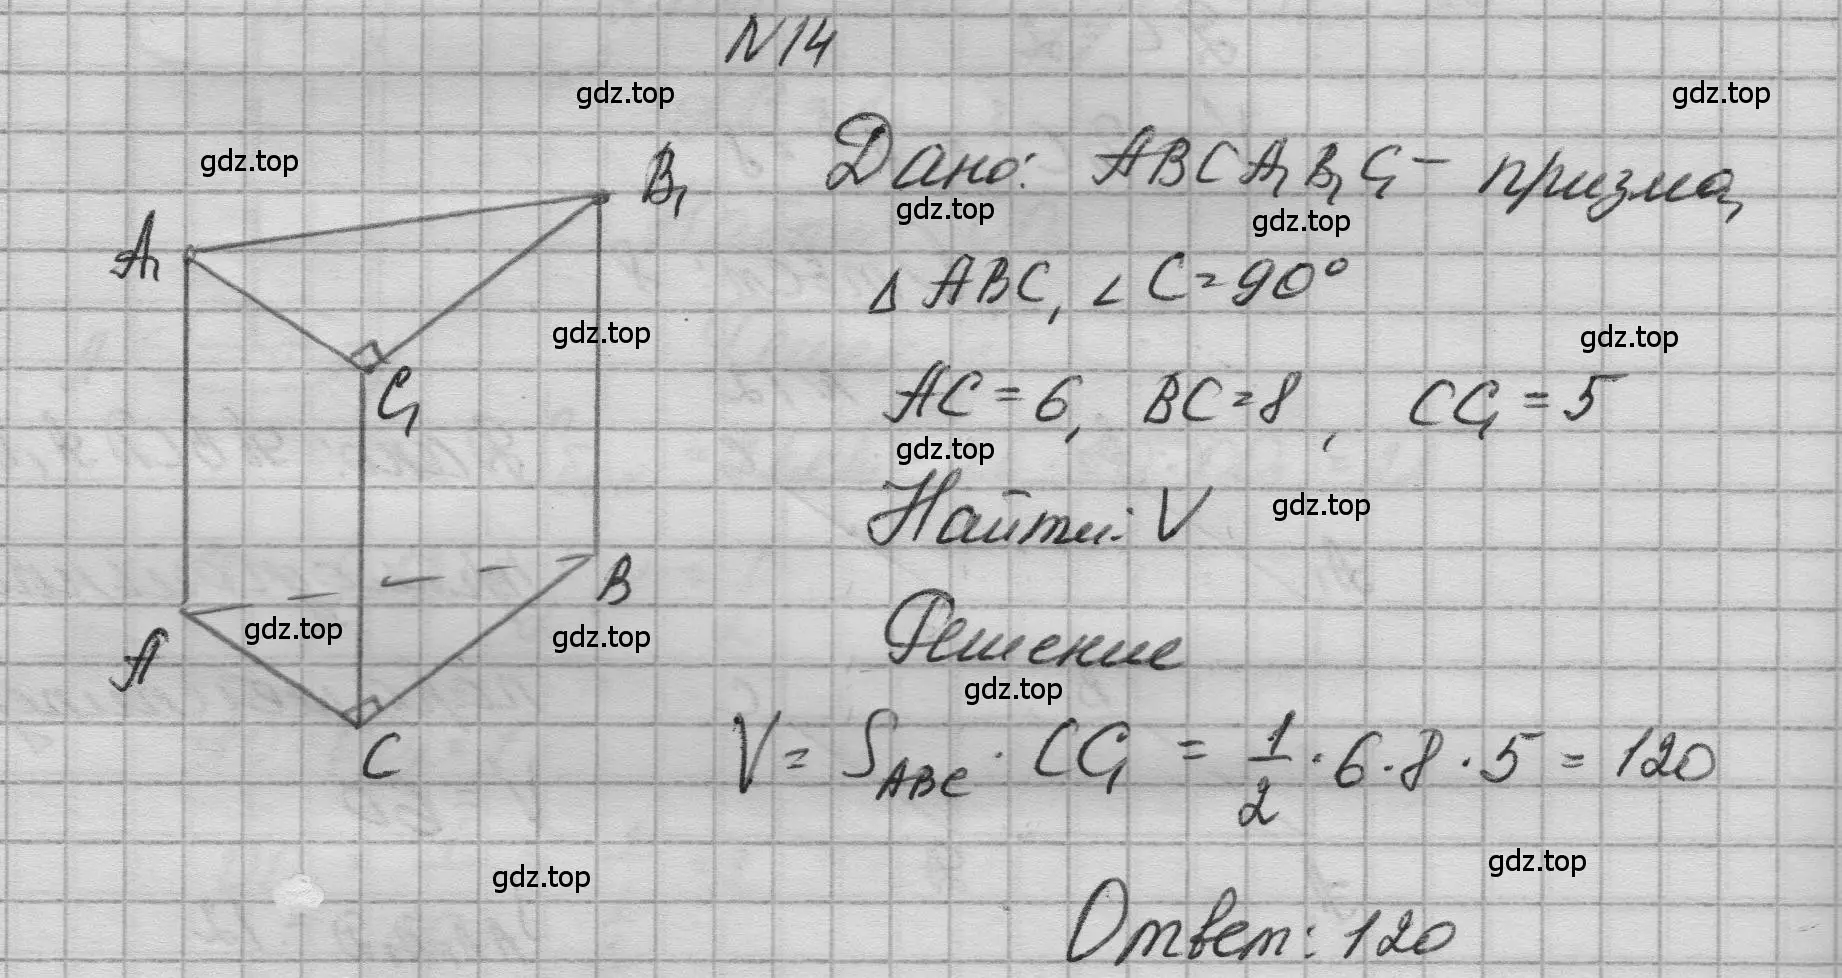 N14
gdz.top
gdz.top
gdz.top
Дано: ABCA₁B₁C₁ – призма,
gdz.top
gdz.top
B₁
A₁
Δ ABC, ∠ C = 90°
gdz.top
gdz.top
C₁
AC = 6, BC = 8, CC₁ = 5
gdz.top
Найти: V
gdz.top
B
A
gdz.top
gdz.top
Решение
gdz.top
C
V = S_ABC · CC₁ = 1/2 · 6 · 8 · 5 = 120
gdz.top
gdz.top
Ответ: 120